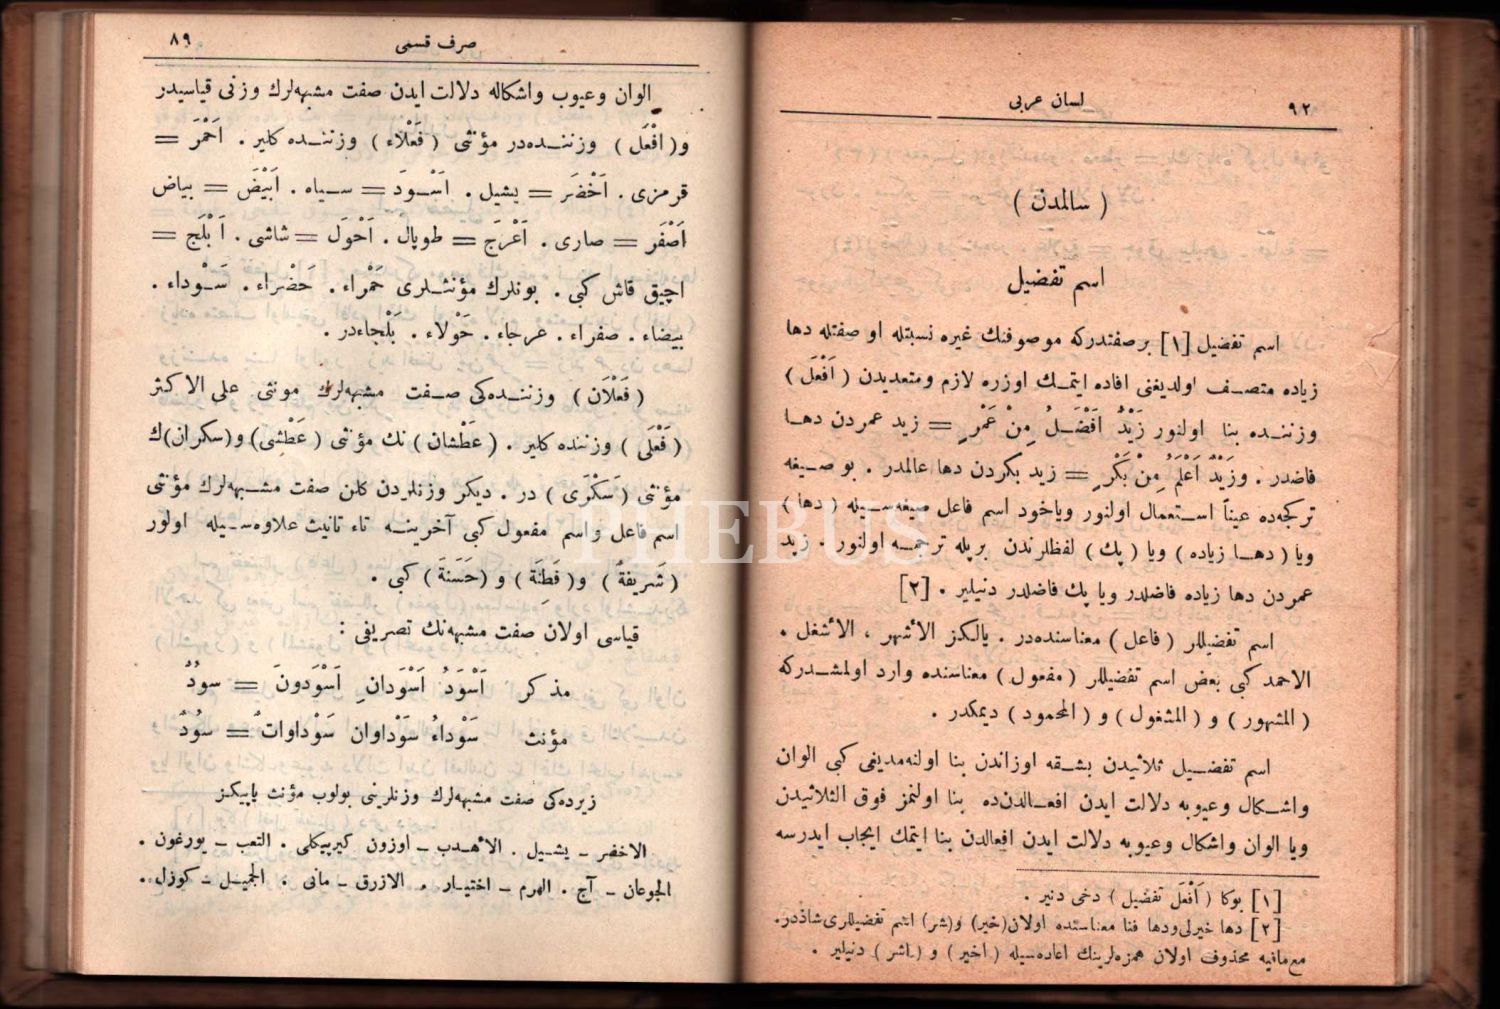 لسان عربی
٩٢
( سالمدن )
اسم تفضیل
اسم تفضیل [١] بر صفتدرکه موصوفنك غیره نسبتله او صفتله دها
زیاده متصـف اولدیغنی افاده ایتمـك اوزره لازم ومتعدیدن ( اَفْعَل )
وزننـده بنا اولنور زَیْدٌ اَفْضَـلُ مِنْ عَمْرٍ = زید عمردن دهـا
فاضدر . وزَیْدٌ اَعْلَمُ مِنْ بَکْرٍ = زید بکردن دها عالمدر . بو صـیغه
ترکجه‌ده عیناً اسـتعمال اولنور ویاخود اسم فاعل صیغه‌سـیله ( دها )
ویا ( دهـا زیاده ) ویا ( پك ) لفظلرندن بریله ترجمـه اولنور . زید
عمردن دها زیاده فاضلدر ویا پك فاضلدر دنیلیر . [٢]
اسم تفضیللر ( فاعل ) معناسنده‌در . یالکز الأشهر ، الأشغل .
الاحمد کبی بعض اسم تفضیللر ( مفعول ) معناسنده وارد اولمشـدرکه
( المشهور ) و ( المشغول ) و ( المحمود ) دیمکدر .
اسم تفضـیل ثلاثیدن بشـقه اوزاندن بنا اولنه‌مدیغی کبی الوان
واشـکال وعیوبه دلالت ایدن افعـالدن‌ده بنا اولنمز فوق الثلاثیدن
ویا الوان واشکال وعیوبه دلالت ایدن افعالدن بنا ایتمك ایجاب ایدرسه
[١] بوکا ( اَفْعَل تفضیل ) دخی دنیر .
[٢] دها خیرلی ودها فنا معناسنده اولان (خیر) و(شر) اسم تفضیللری شاذدر.
مع‌مافیه محذوف اولان همزه‌لرینك اعاده‌سیله ( اخیر ) و ( اشر ) دنیلیر .
صرف قسمی
٨٩
الوان وعیوب واشکاله دلالت ایدن صفت مشبهه‌لرك وزنی قیاسیدر
و( افْعَل ) وزننـده‌در مؤنثی ( فَعْلاء ) وزننـده کلیر . اَحْمَر =
قرمزی . اَخْضَر = یشیل . اَسْـوَد = سـیاه . اَبْیَض = بیاض
اَصْفَر = صاری . اَعْرَج = طوپال . اَحْوَل = شاشی . اَبْلَج =
اچیق قاش کبی . بونلرك مؤنثـلری حَمْراء . خَضْراء . سَـوْداء .
بیضاء . صفراء . عرجاء . حَوْلاء . بَلْجاءدر .
( فَعْلَان ) وزننـده‌کی صـفت مشبهه‌لرك مونثی علی الاکثر
( فَعْلَی ) وزننده کلیر . ( عَطْشان ) نك مؤنثی ( عَطْشِی) و(سکران)ك
مؤنثی ( سَکْرَی ) در . دیکر وزنلردن کلن صفت مشـبهه‌لرك مؤنثی
اسم فاعل واسم مفعول کبی آخرینـه تاء تانیث علاوه‌سـیله اولور
( شَریفةٌ ) و( فَطِنَة ) و (حَسَنَة ) کبی .
قیاسی اولان صفت مشبهه‌نك تصریفی :
مذکر اَسْوَدُ اَسْوَدانِ اَسْوَدونَ = سودٌ
مؤنث سَوْداءُ سَوْداوان سَوْداواتٌ = سُودٌ
زیرده‌کی صفت مشبهه‌لرك وزنلرینی بولوب مؤنث یاپیکز
الاخضر ــ یشـیل . الأهـدب ــ اوزون کیرپیکلی . التعب ــ یورغون .
الجوعان ــ آج . الهرم ــ اختیـار . الازرق ــ مائی . الجمیـل ــ کوزل .
PHEBUS